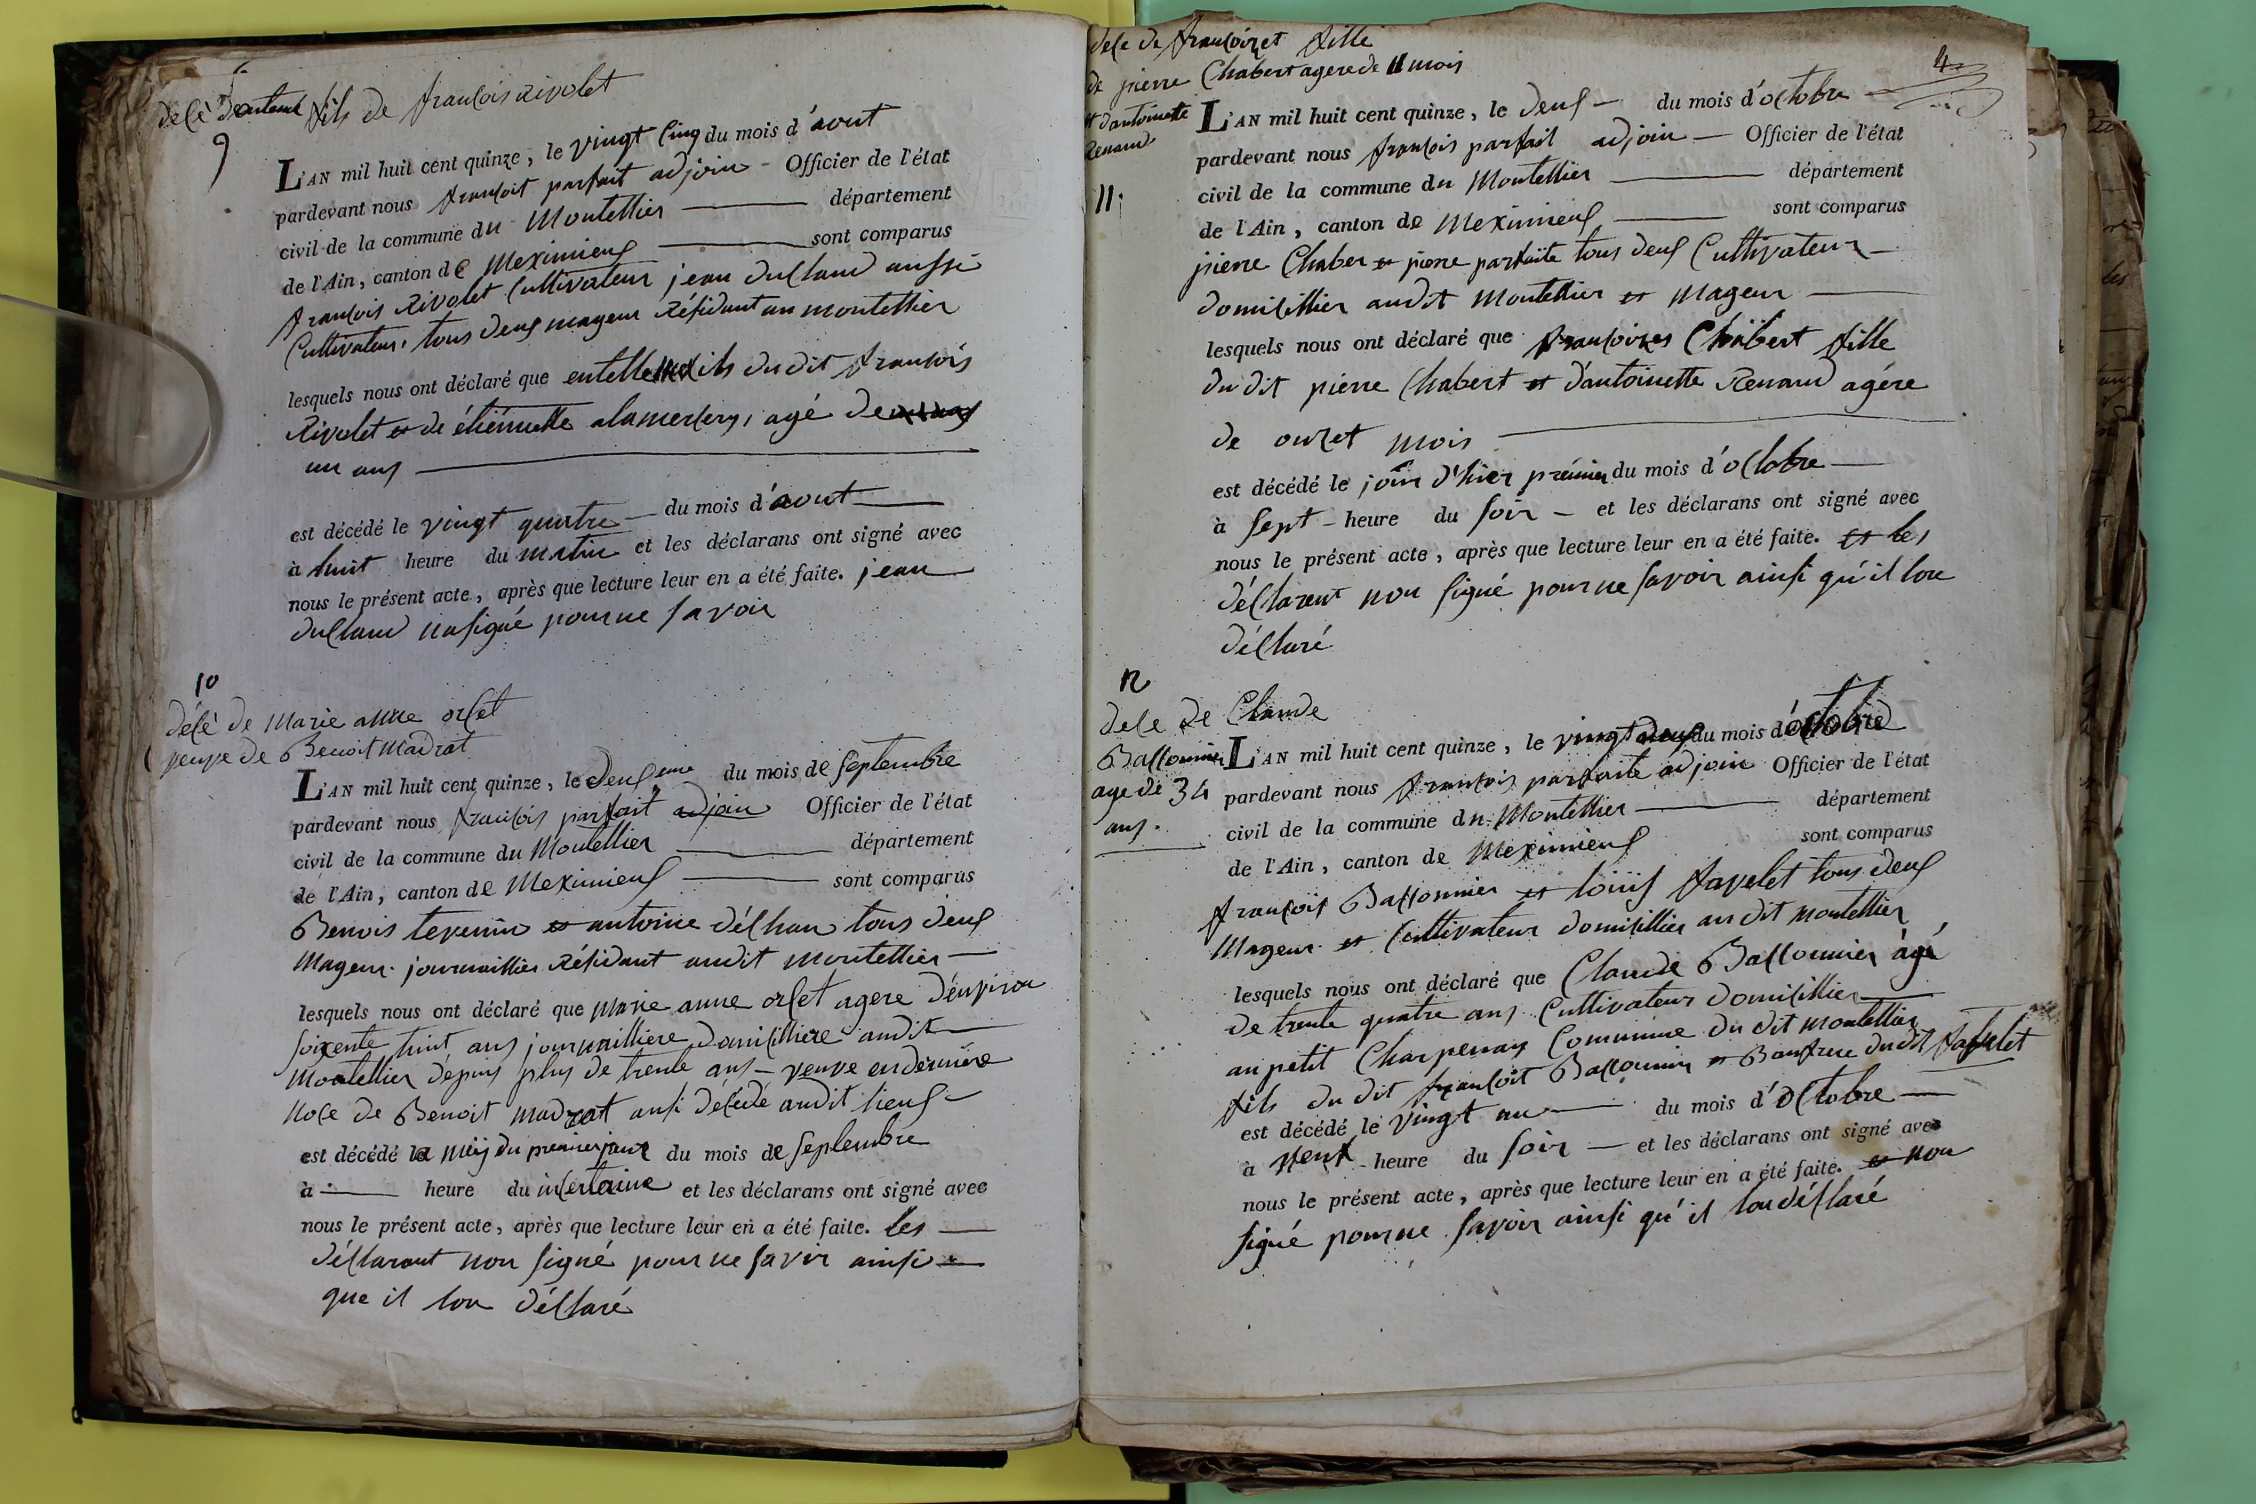 décè dantelme fils de françois Rivolet
9
L'AN mil huit cent quinze, le vingt cinq du mois d'aout
pardevant nous françoit parfait adjoin - Officier de l'état
civil de la commune du Montellier département
de l'Ain, canton de Meximieux sont comparus
françois Rivolet Cultivateur jean duClaud aussi
Cultivateur, tous deux mageur Résidant au montellier
lesquels nous ont déclaré que entelleme fils du dit françois
Rivolet et de étiénnette alamercery, agé de
un ans
est décédé le vingt quatre du mois d'aout
à huit heure du matin et les déclarans ont signé avec
nous le présent acte, après que lecture leur en a été faite. jean
duClaud na signé pour ne savoir
10
décè de Marie anne orset
veuve de Benoit Madrat
L'AN mil huit cent quinze, le deuxeme du mois de septembre
pardevant nous françois parfait adjoin Officier de l'état
civil de la commune du Montellier département
de l'Ain, canton de Meximieux sont comparus
Benois tevenin et antoine délhan tous deux
Mageur journaillier Résidant audit montellier
lesquels nous ont déclaré que Marie anne orset agere d'environ
soixente huit ans journailliere domicilliere audit
Montellier dépuis plus de trente ans - veuve en derniére
noce de Benoit madrat ansi décédé audit lieux
est décédé la nuij du premier jour du mois de septembre
à heure du incertaine et les déclarans ont signé avec
nous le présent acte, après que lecture leur en a été faite. les
déclarant non signé pour ne savoir ainsi
que il lon déclaré
4
dece de françoizet fille
de pierre Chabert agere de 11 mois
et dantoinette
Renaud
11.
L'AN mil huit cent quinze, le deux du mois d'octobre
pardevant nous françois parfait adjoin - Officier de l'état
civil de la commune du Montellier département
de l'Ain, canton de Meximieux sont comparus
pierre Chaber et pierre parfaite tous deux Cultivateur
domicillier audit Montellier et mageur
lesquels nous ont déclaré que françoizes Chabert fille
du dit pierre Chabert et d'antoinette Renaud agére
de onzet mois
est décédé le join d'hier prémier du mois d'octobre
à sept - heure du soir - et les déclarans ont signé avec
nous le présent acte, après que lecture leur en a été faite. et les
déclarent non signé pour ne savoir ainsi qu'il lon
déclaré
12
dece de Claude
Ballonnier
age de 34
ans.
L'AN mil huit cent quinze, le vingt deux du mois d'octobre
pardevant nous françois parfaite adjoin Officier de l'état
civil de la commune du Montellier département
de l'Ain, canton de Meximieux sont comparus
françoit Ballonnier et loüis favelet tous deux
Mageur et Cultivateur domicillier au dit montellier
lesquels nous ont déclaré que Claude Ballonnier àgé
de trente quatre ans Cultivateur domicillier
au petit Charpenay Commune du dit montellier
fils du dit françoit Ballonnier et Baufrere dudit favelet
est décédé le vingt un du mois d'octobre
à neuf - heure du soir - et les déclarans ont signé avec
nous le présent acte, après que lecture leur en a été faite. et non
signé pour ne savoir ainsi qu'il lon déclaré